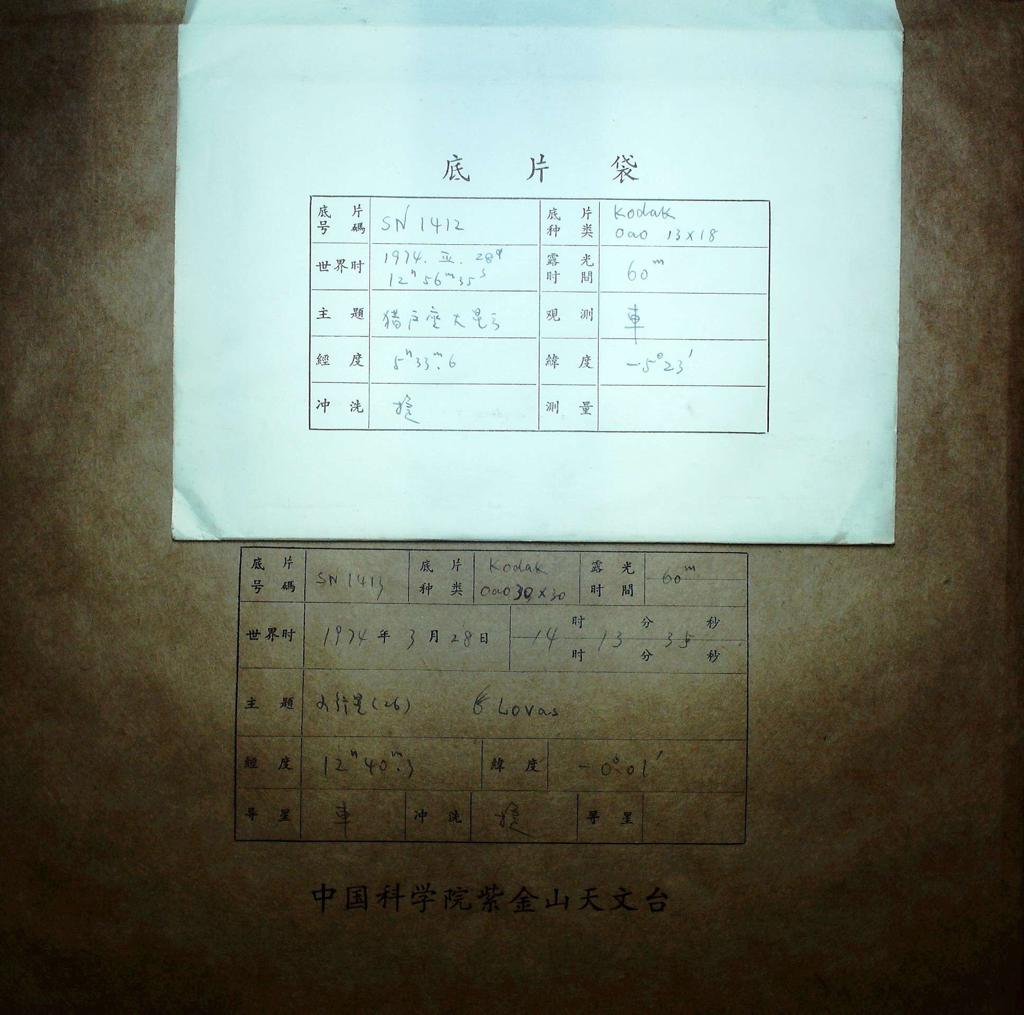 底 片 袋
底 片 号 碼 SN 1412 底 片 种 类 Kodak 0a0 13×18
世界时 1974. III. 28ᵈ 12ʰ 56ᵐ 35ˢ 露 光 时 間 60ᵐ
主 題 猎户座大星云 观 测 車
經 度 5ʰ33ᵐ.6 緯 度 -5°23′
冲 洗 测 量
底 片 号 碼 SN 1413 底 片 种 类 Kodak 0a0 30×30 露 光 时 間 60ᵐ
世界时 1974 年 3 月 28 日 14 时 13 分 35 秒
时 分 秒
主 題 小行星(26) Lovas
經 度 12ʰ40ᵐ.3 緯 度 -0°01′
导 星 車 冲 洗 导 星
中国科学院紫金山天文台